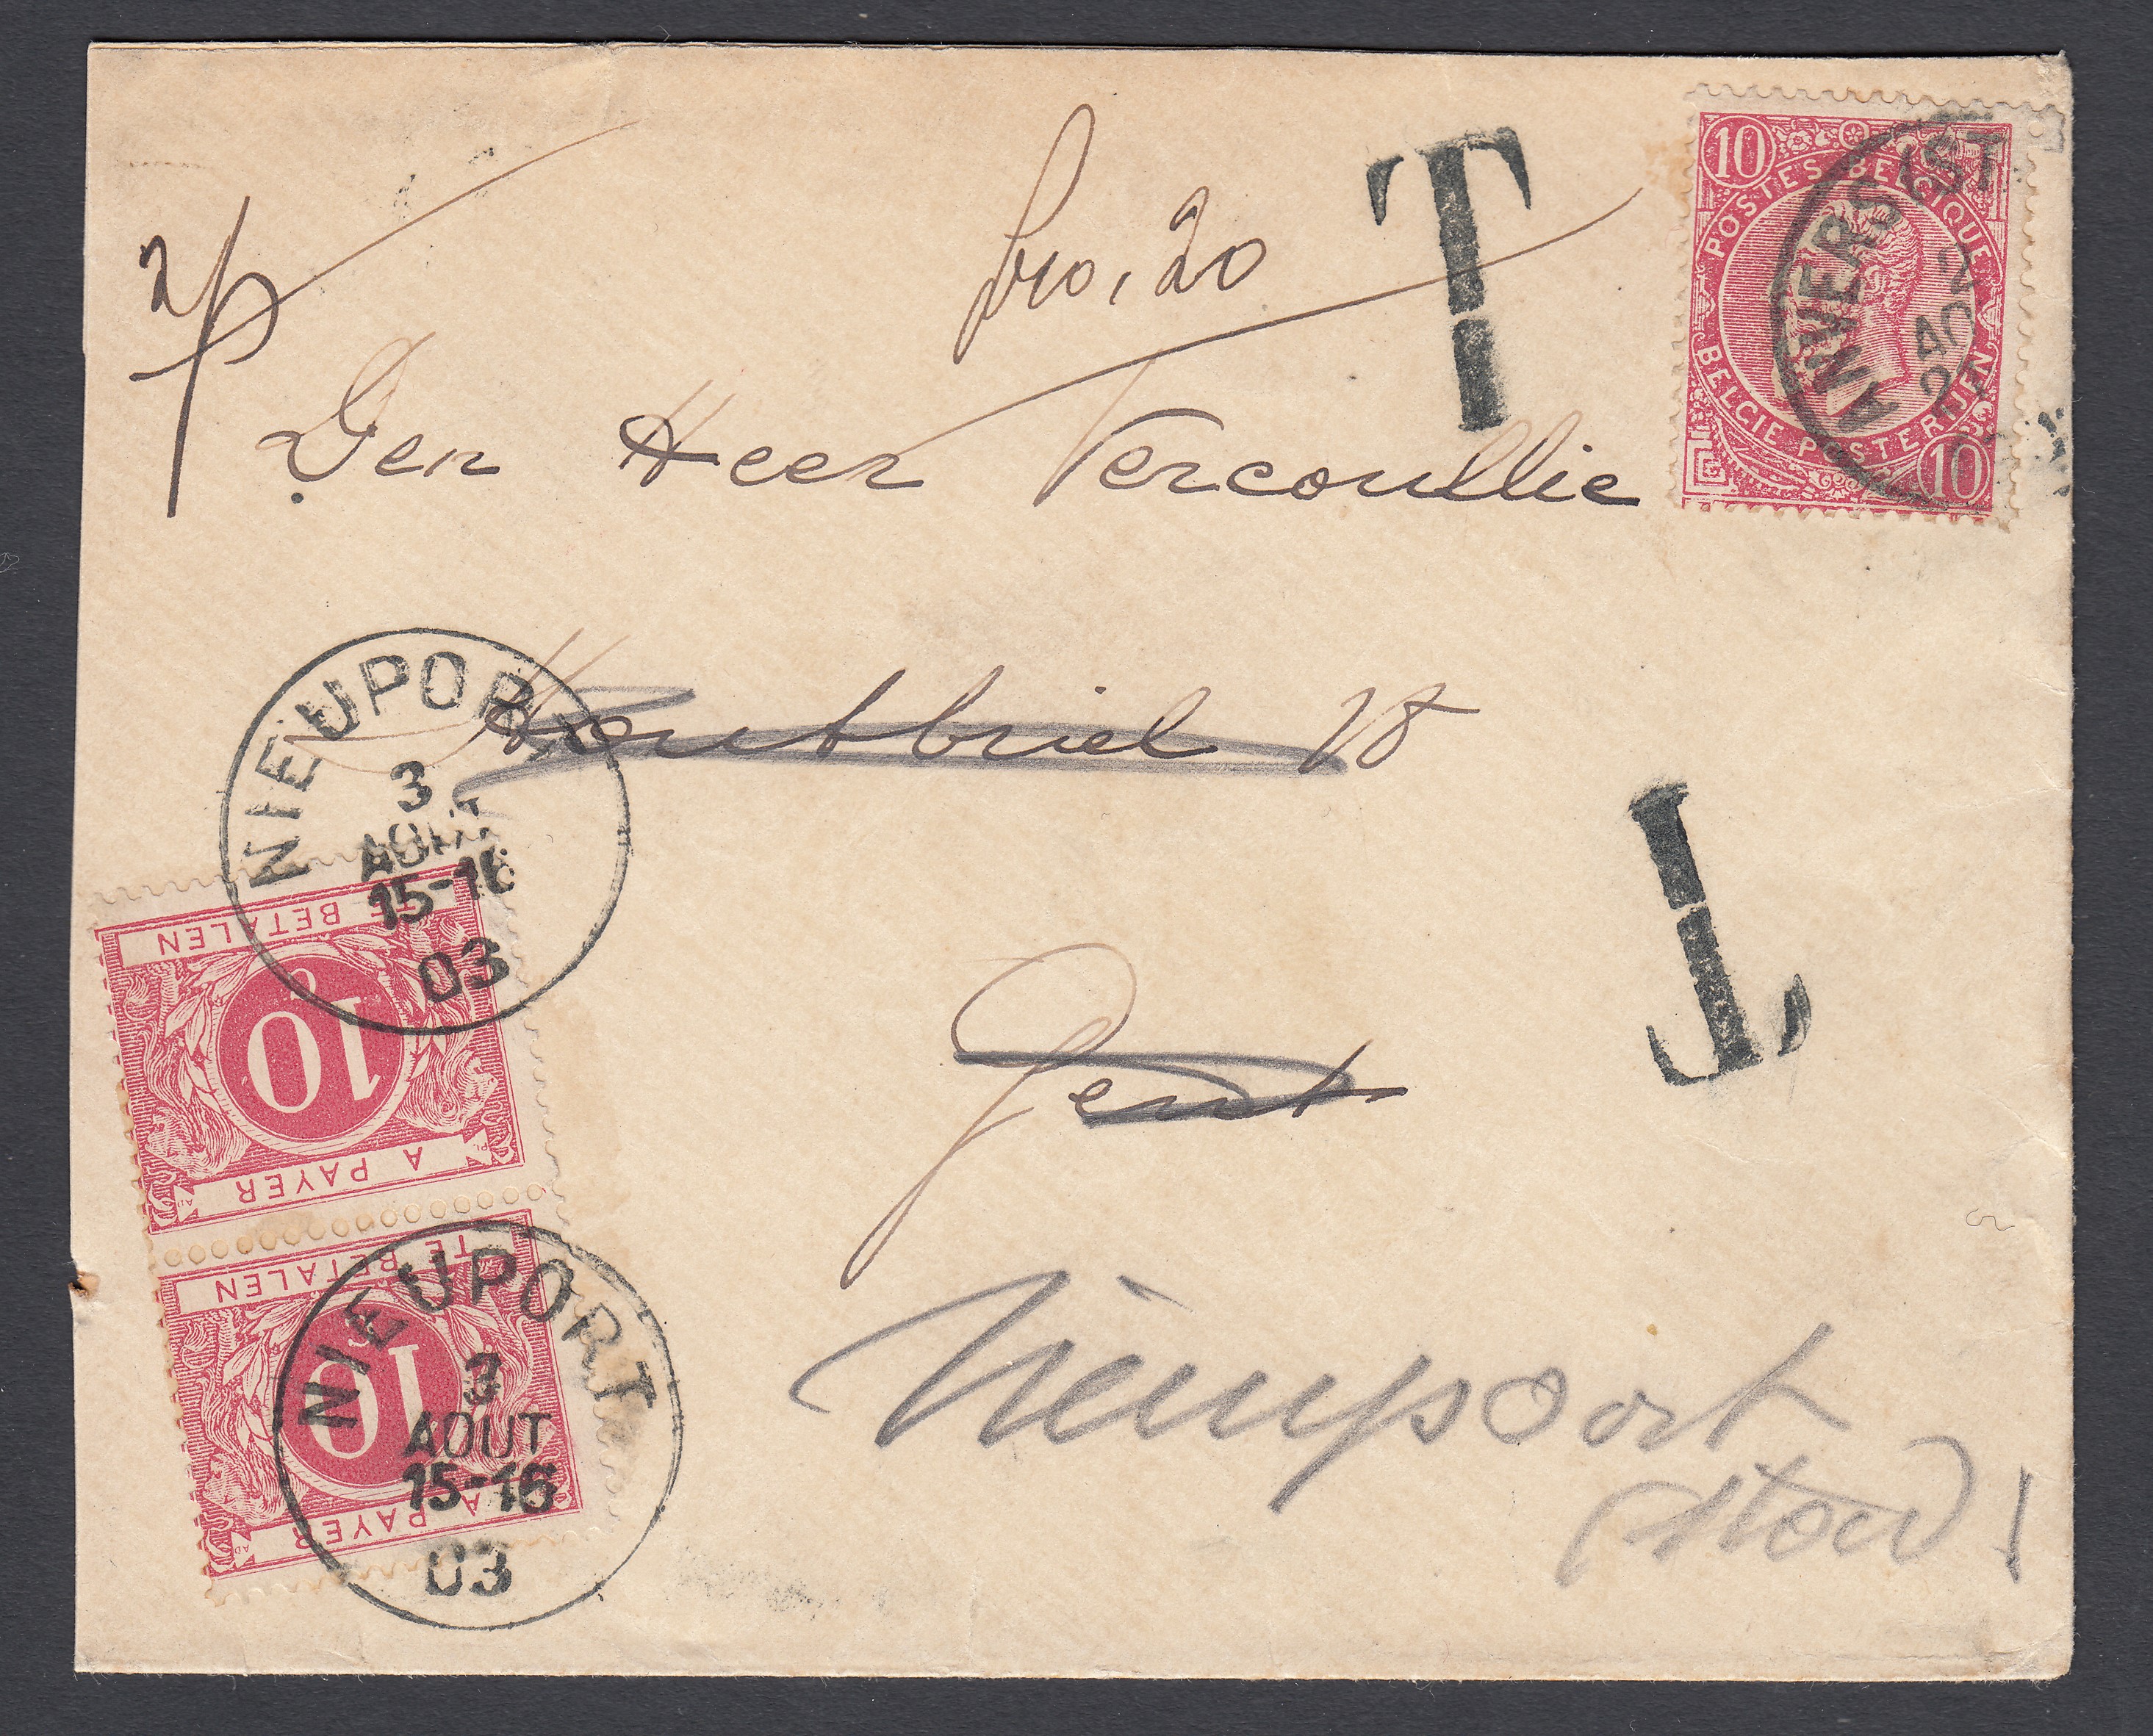 2/p
fro, 20
T
10
POSTES BELGIQUE
BELGIE POSTERIJEN
10
ANVERS EST
2
AO
Den Heer Vercoullie
Houtbriel 28
Gent
T
NIEUPORT
3
AOUT
15-16
03
TE BETALEN
10 c
A PAYER
TE BETALEN
10 c
A PAYER
NIEUPORT
3
AOUT
15-16
03
Nieupoort
stad